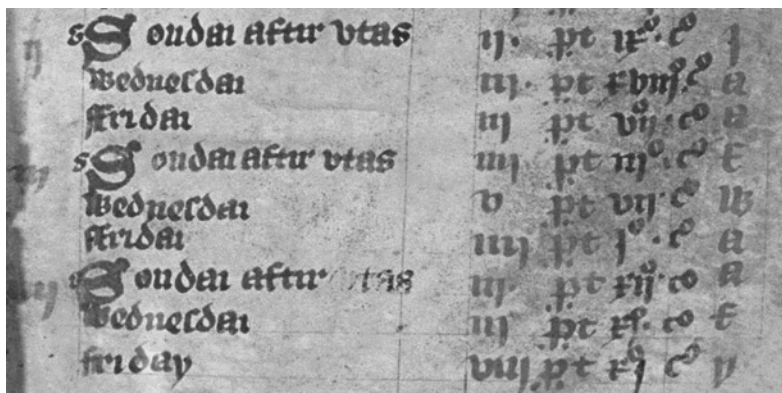 ij s Soudai aftir vtas ij. pt ix. co I
wednesdai iij. pt xviij. co a
ffridai iij pt vij. co a
s Soudai aftir vtas iiij pt iij. co E
wednesdai v pt vij. co W
ffridai iiij pt I. co a
s Soudai aftir vtas iij. pt xij. co a
wednesdai iij pt xI. co E
friday viij pt xI co